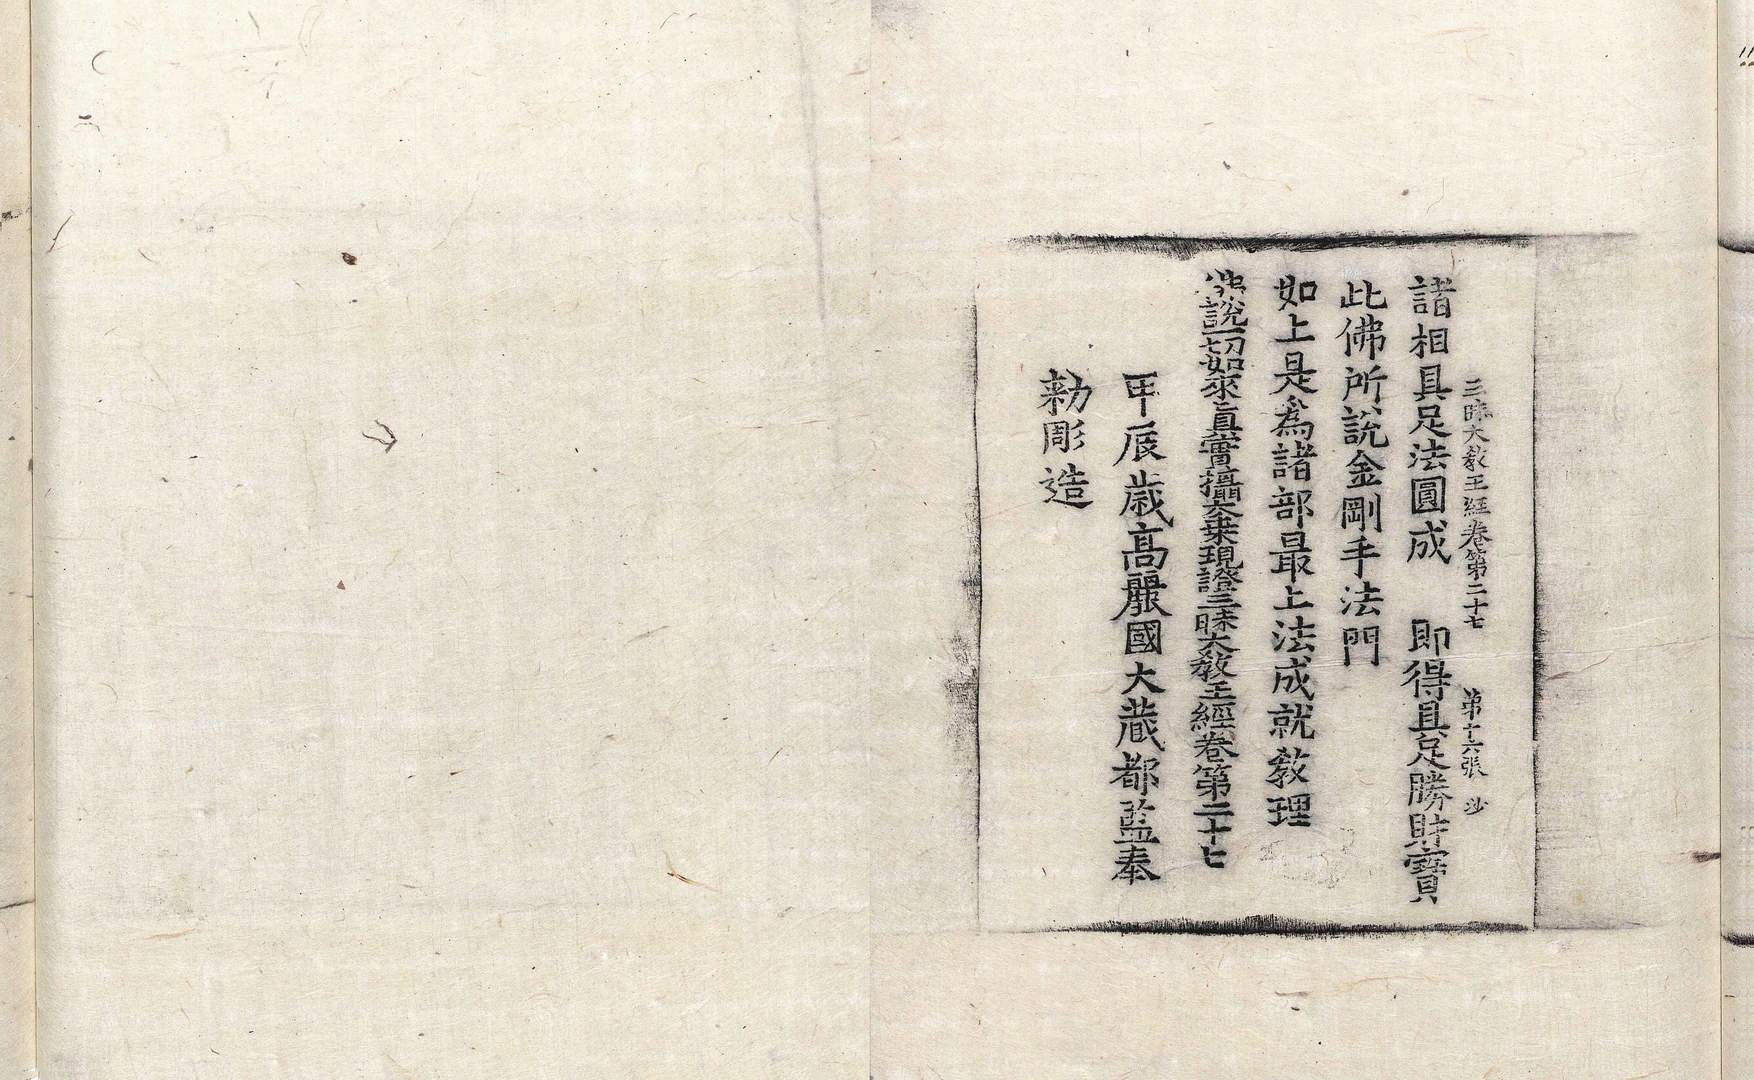 三昧大敎王經卷第二十七 第十六張 沙
諸相具足法圓成 即得具足勝財寶
此佛所說金剛手法門
如上是爲諸部最上法成就敎理
佛說一切如來眞實攝大乘現證三昧大敎王經卷第二十七
甲辰歲高麗國大藏都監奉
勑彫造